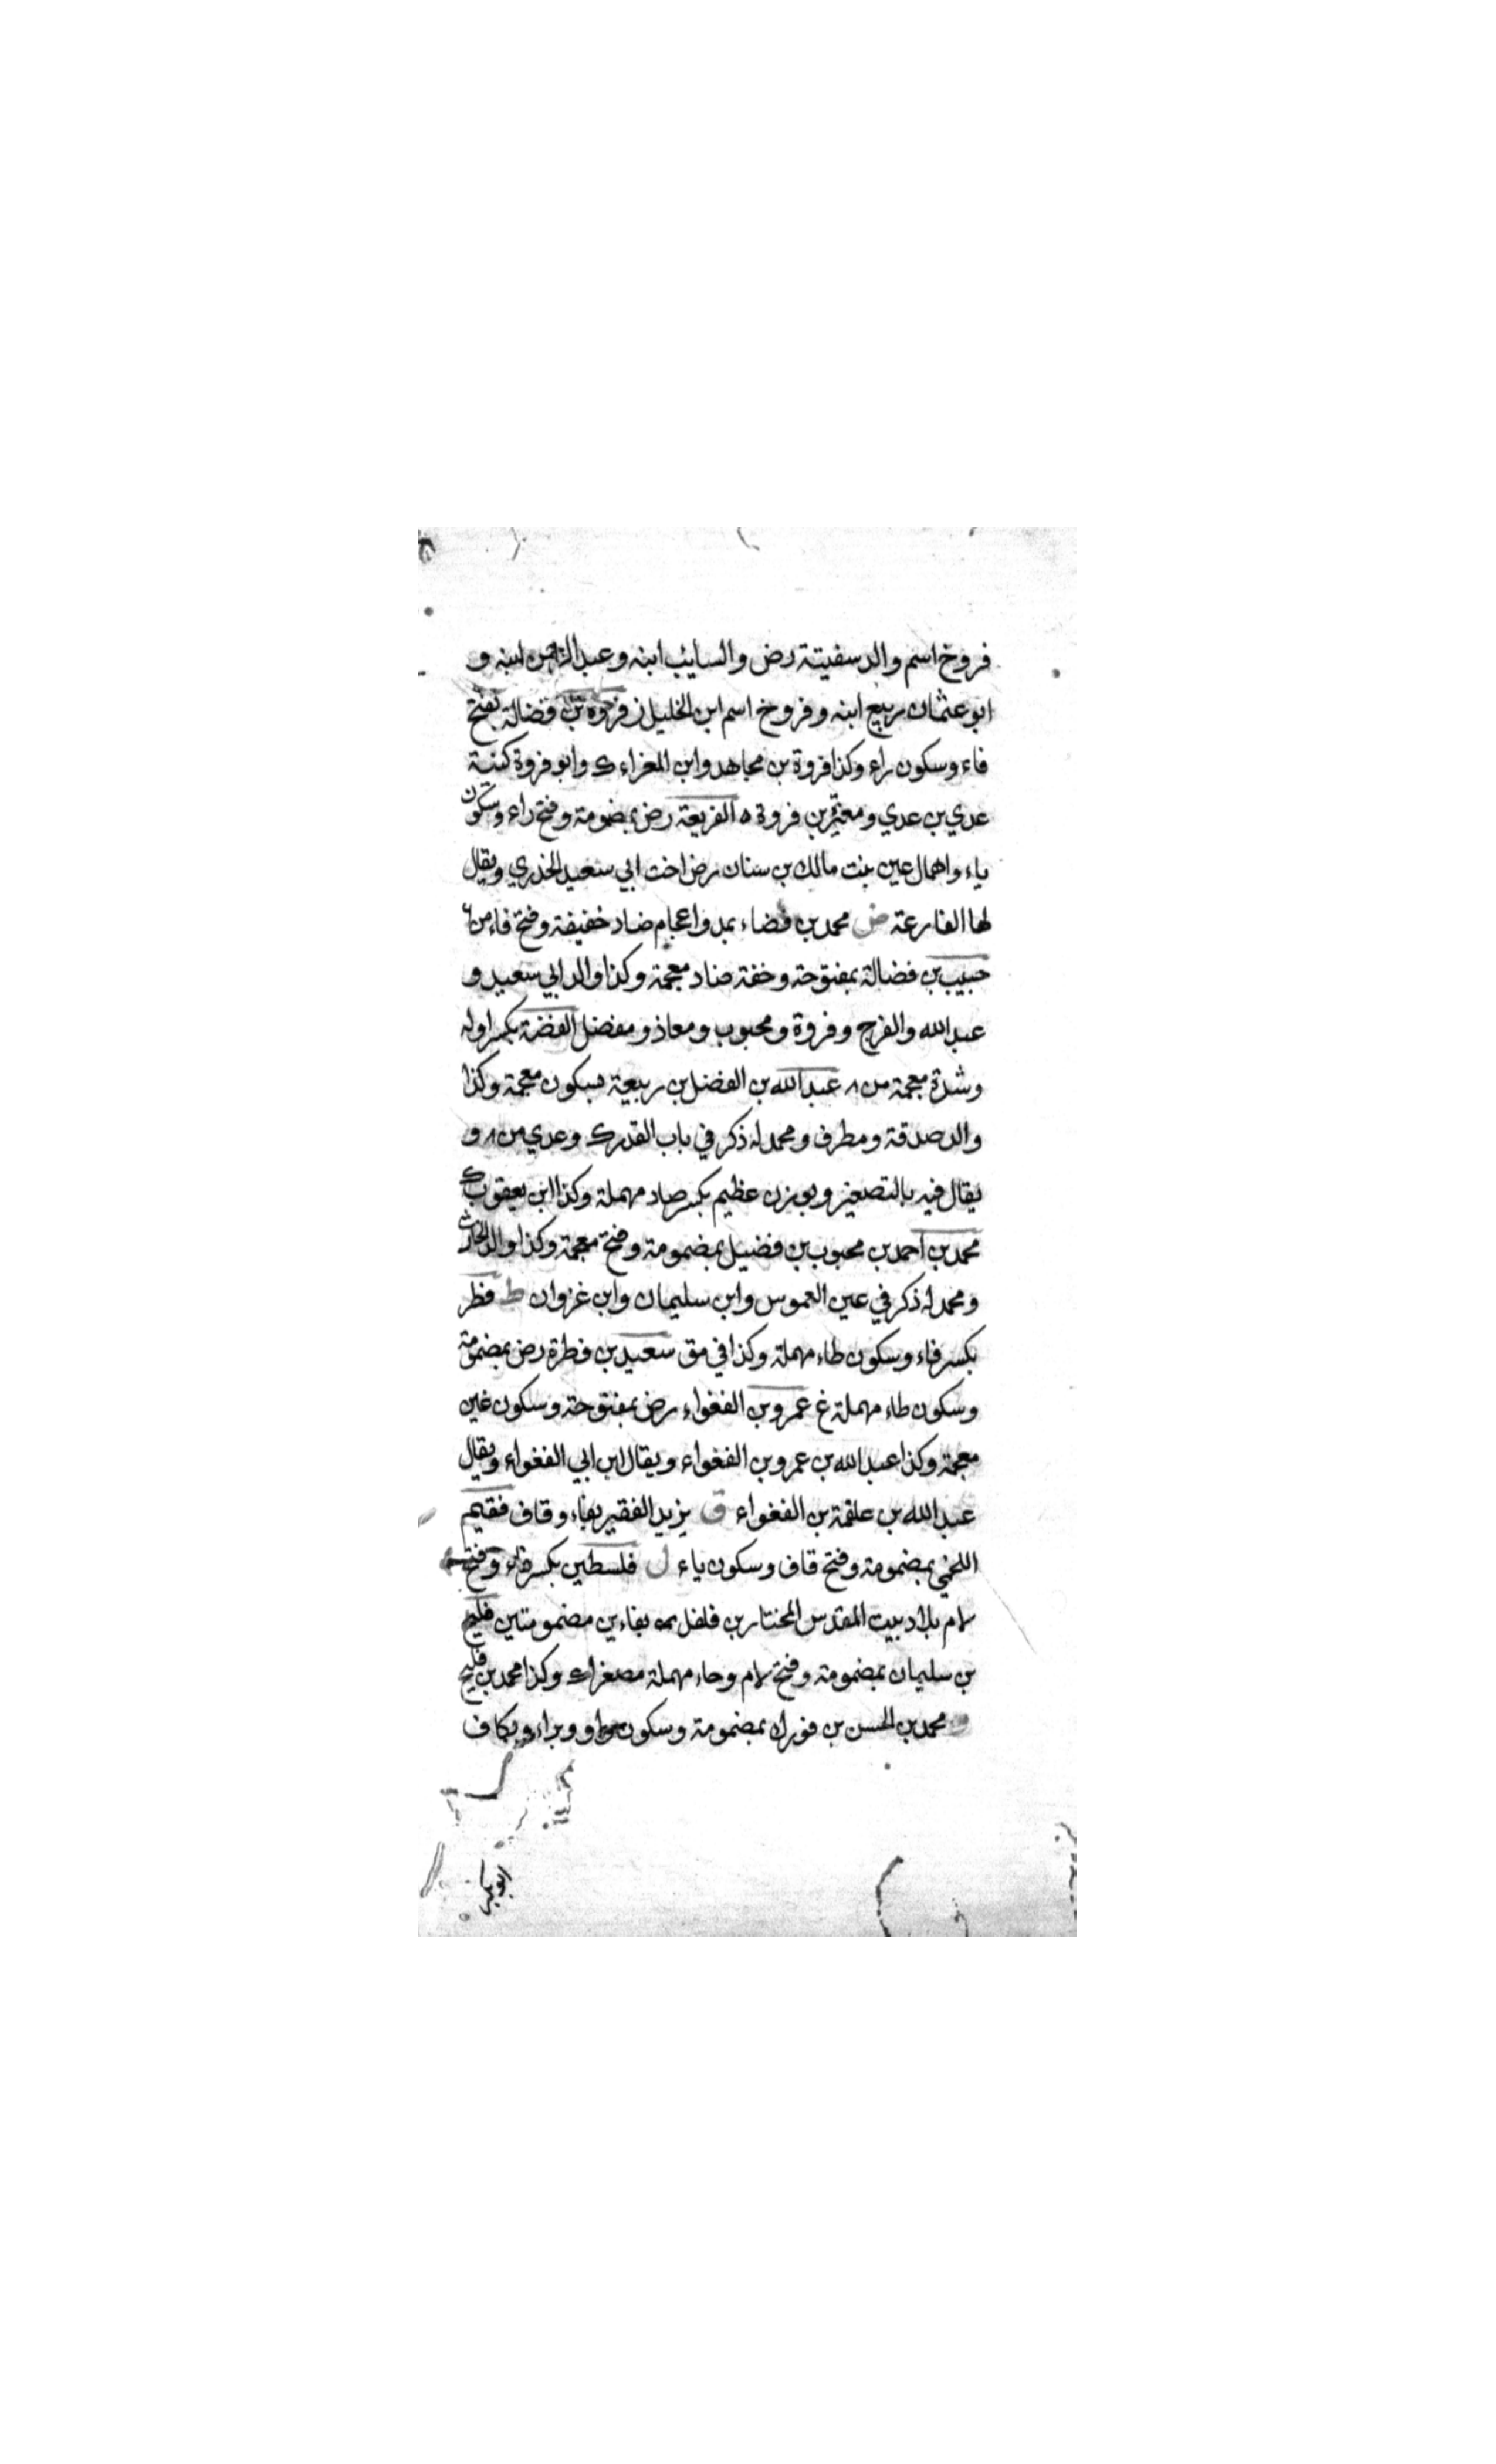 فروخ اسم والد سفيتة رض والسايب ابنه وعبد الرحمن ابنه و
ابو عثمان ربيع ابنه وفروخ اسم ابن الخليل ز فروة بن فضالة بفتح
فاء وسكون راء وكذا فروة بن مجاهد وابن المغراء ك وابو فروة كنية
عدي بن عدي ومعتز بن فروة ه الفريعة رض بمضمومة وفتح راء وسكون
ياء واهمال عين بنت مالك بن سنان رض اخت ابي سعيد الخدري ويقال
لها الفارعة ض محمد بن فضاء بمد واعجام ضاد خفيفة وفتح فاء من ٤
حبيب بن فضالة بمفتوحة وخفة ضاد معجمة وكذا والد ابي سعيد و
عبد الله والفرج وفروة ومحبوب ومعاذ ومفضل الفضة بكسر اوله
وشدة معجمة من ٨ عبد الله بن الفضل بن ربيعة بسكون معجمة وكذا
والد صدقة ومطرف ومحمد له ذكر في باب القدر ك وعدي من ٨ و
يقال فيه بالتصغير وبوزن عظيم بكسر صاد مهملة وكذا ابن يعقوب ك
محمد بن احمد بن محبوب بن فضيل بمضمومة وفتح معجمة وكذا والد الحارث
ومحمد له ذكر في عين العموس وابن سليمان وابن غزوان ط فطر
بكسر فاء وسكون طاء مهملة وكذا في مق سعيد بن فطرة رض بمضمومة
وسكون طاء مهملة غ عمرو بن الفغواء رض بمفتوحة وسكون غين
معجمة وكذا عبد الله بن عمرو بن الفغواء ويقال ابن ابي الفغواء ويقال
عبد الله بن علقمة بن الفغواء ق يزيد الفقير بفاء وقاف فقيم
اللخمي بمضمومة وفتح قاف وسكون ياء ل فلسطين بكسر فاء وفتح
لام بلاد بيت المقدس المختار بن فلفل مه بفاءين مضمومتين فليح
بن سليمان بمضمومة وفتح لام وحاء مهملة مصغرا ك وكذا محمد بن فليح
و محمد بن الحسن بن فورك بمضمومة وسكون واو وبراء وبكاف
ابو بكر